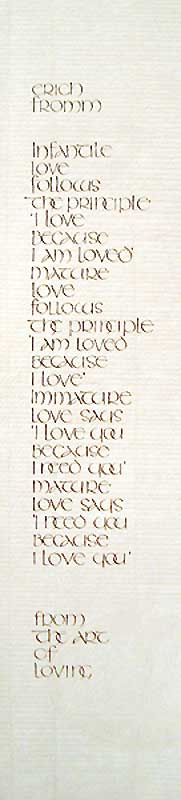 ERICH
FROMM
INFANTILE
LOVE
FOLLOWS
THE PRINCIPLE
'I LOVE
BECAUSE
I AM LOVED'
MATURE
LOVE
FOLLOWS
THE PRINCIPLE
'I AM LOVED
BECAUSE
I LOVE'
IMMATURE
LOVE SAYS
'I LOVE YOU
BECAUSE
I NEED YOU'
MATURE
LOVE SAYS
'I NEED YOU
BECAUSE
I LOVE YOU'
FROM
THE ART
OF
LOVING